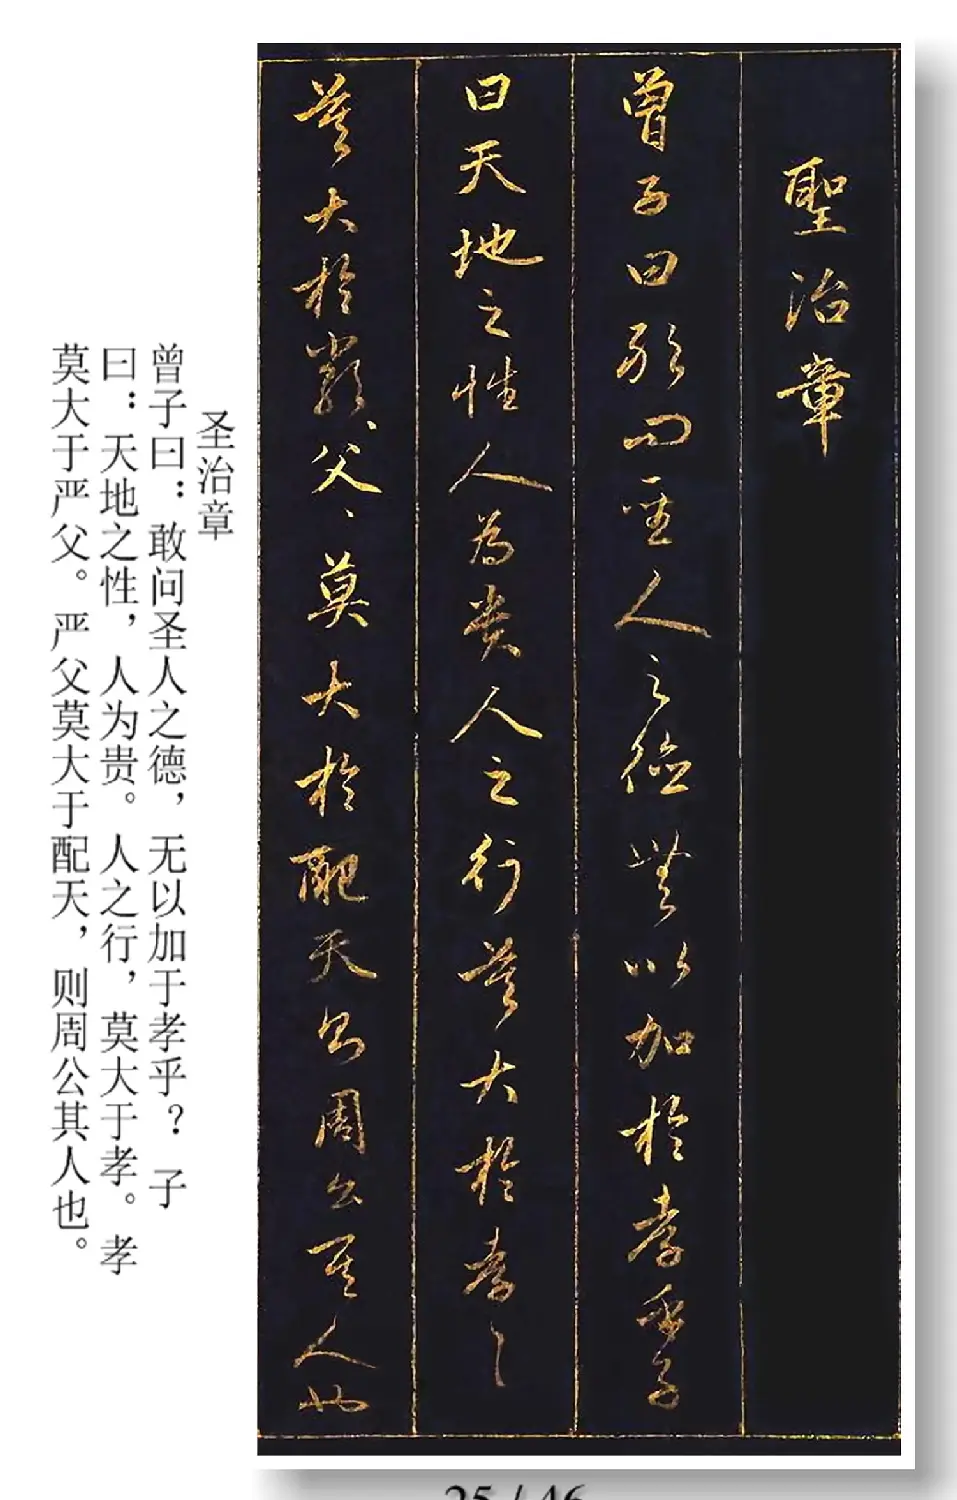 聖治章
曾子曰敢问聖人之德無以加於孝乎子
曰天地之性人為貴人之行莫大於孝〻
莫大於嚴〻父〻莫大於配天則周公其人也
圣治章
曾子曰：敢问圣人之德，无以加于孝乎？子
曰：天地之性，人为贵。人之行，莫大于孝。孝
莫大于严父。严父莫大于配天，则周公其人也。
25 / 46